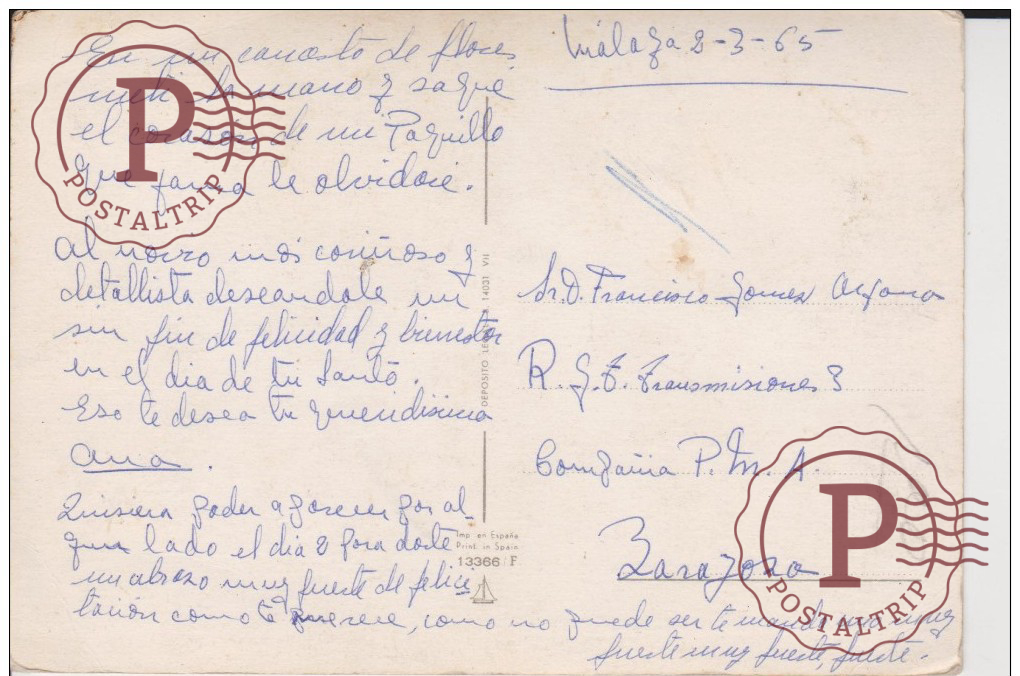 En un canasto de flores
metí la mano y saqué
el corazón de un Paquillo
que jamás le olvidaré.
Al novio más cariñoso y
detallista deseandole un
sin fin de felicidad y bienestar
en el dia de tu Santo.
Eso te desea tu queridisima
Ana.
Quisiera poder aparecer por al-
gun lado el dia 2 para darte
un abrazo muy fuerte de felici-
tación como te mereces, como no puede ser te mando uno muy
fuerte muy fuerte, fuerte.
DEPOSITO LEGAL 14031 VII
Imp. en España
Print. in Spain
13366/F
Málaga 2-3-65
Sr. D. Francisco Gomez
R. G. F. Transmisiones 3
Compañia P. M. A.
Zaragoza
P
POSTALTRIP
P
POSTALTRIP